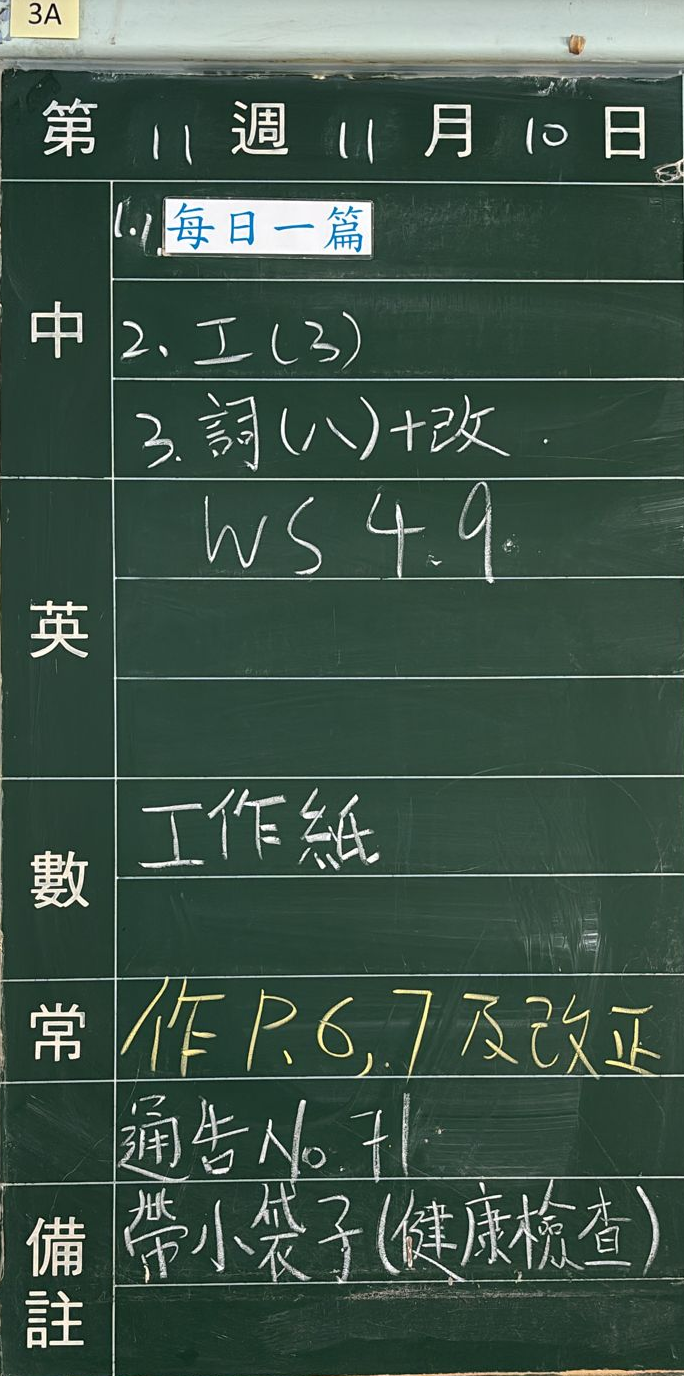 3A
第 11 週 11 月 10 日
中
1. 每日一篇
2. 工(3)
3. 詞(八)+改
英
WS 4.9.
數
工作紙
常
作 P. 6, 7 及改正
通告 No. 71
備註
帶小袋子(健康檢查)